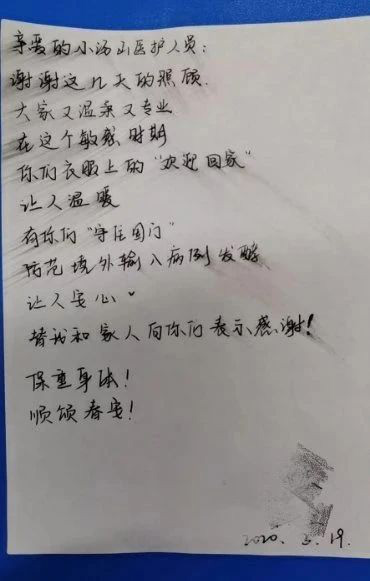 亲爱的小汤山医护人员：
谢谢这几天的照顾.
大家又温柔又专业
在这个敏感时期
你们衣服上的“欢迎回家”
让人温暖
有你们“守住国门”
防范境外输入病例发酵
让人安心。
替我和家人向你们表示感谢！
保重身体！
顺颂春安！
2020. 3. 19.